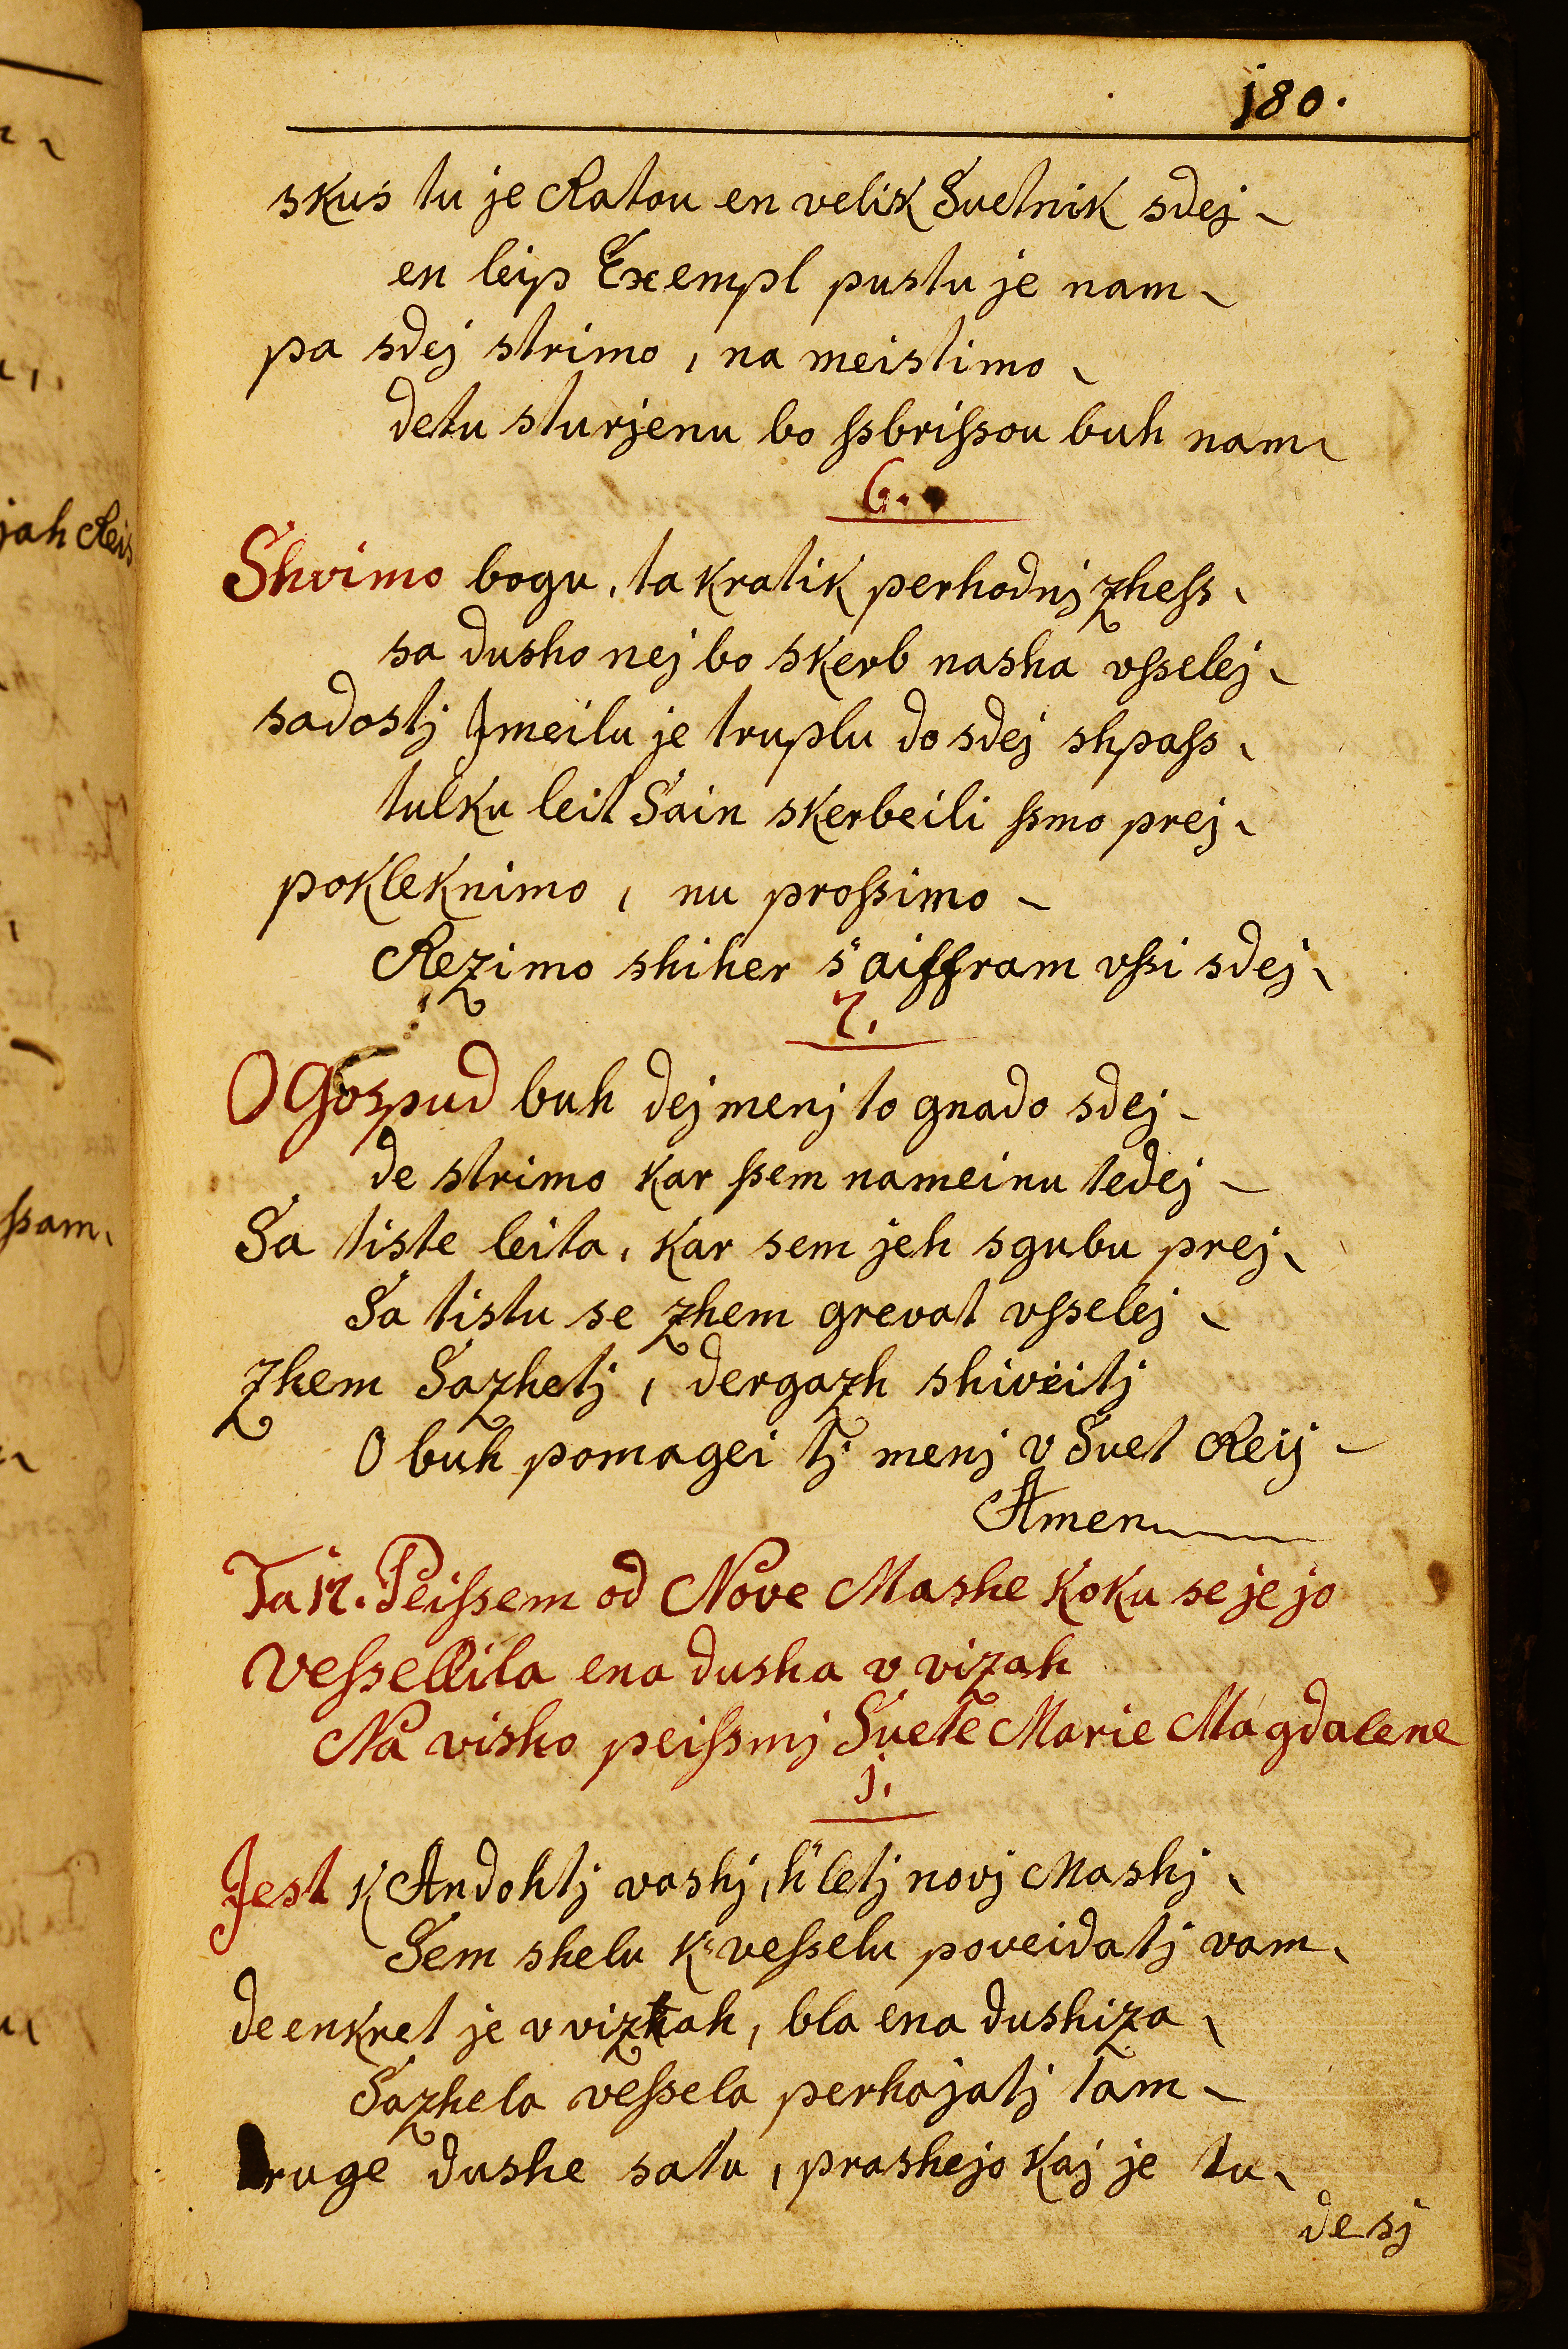 j80.
skus tu je Ratou en velik Suetnik sdej
en leip Exempl pustu je nam
pa sdej strimo, na meistimo
detu sturjenu bo ſsbriſsou buh nam
6.
Shvimo bogu, ta kratik perhodnj zheſs
sa dusho nej bo skerb nasha vſselej
sadostj Jmeilu je truplu do sdej shpaſs
tulku leit Sain skerbeili ſsmo prej
pokleknimo, nu proſsimo
Rezimo shiher s"aiffram vſsi sdej
7.
O Gospud buh dej menj to gnado sdej
de strimo kar ſsem nameinu tedej
Sa tiste leita, kar sem jeh sgubu prej
Sa tistu se zhem grevat vſselej
zhem Sazhetj, dergazh shiveitj
O buh pomagei tj menj v Suet Reij
Amen
Ta j7. Peiſsem od Nove Mashe koku se je jo
veſsellila ena dusha v vizah
Na visho peiſsmj Suete Marie Magdalene
j.
Jest k Andohtj vashj, h"letj novj Mashj
Sem shelu k"veſselu poveidatj vam
de enkret je v vizhah, bla ena dushiza
Sazhela veſsela perhajatj tam
Druge dushe satu, prashejo kaj je tu
de sj
jah Reis
ſsam